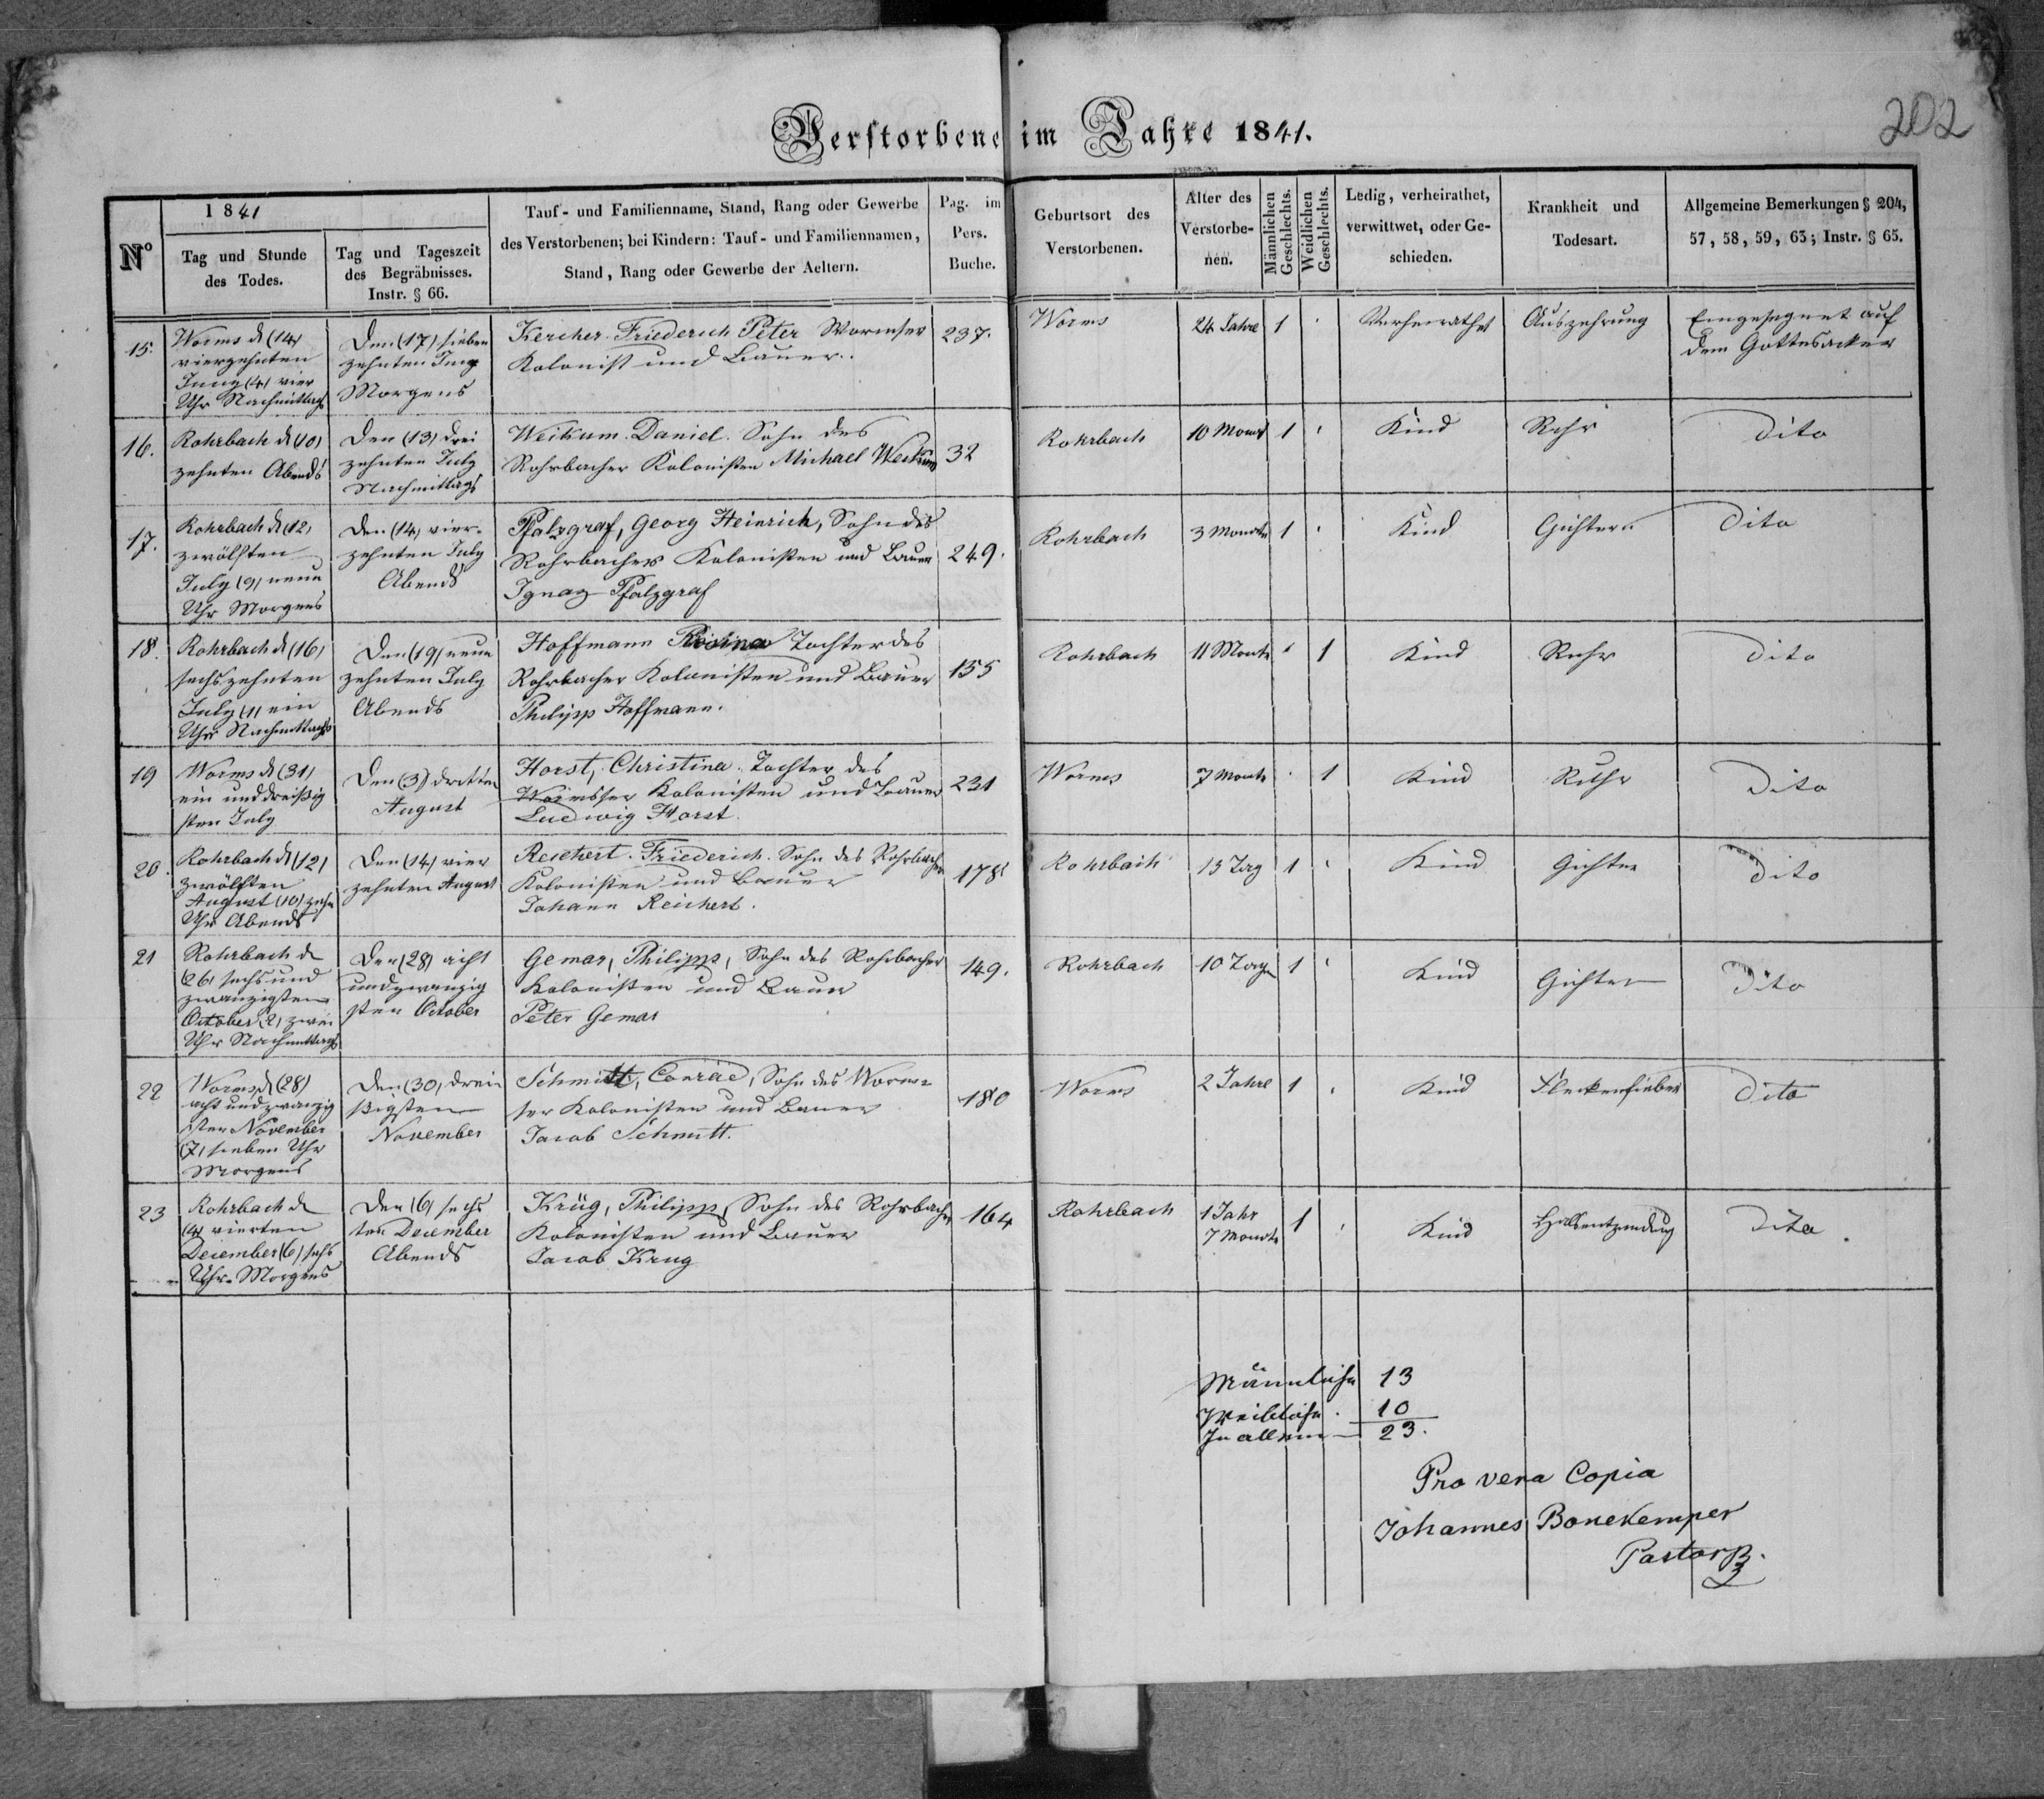 Verstorbene im Jahre 1841.
202
Nº
1841
Tag und Stunde
des Todes.
Tag und Tageszeit
des Begräbnisses.
Instr. § 66.
Tauf- und Familienname, Stand, Rang oder Gewerbe
des Verstorbenen; bei Kindern: Tauf- und Familiennamen,
Stand, Rang oder Gewerbe der Aeltern.
Pag. im
Pers.
Buche.
Geburtsort des
Verstorbenen.
Alter des
Verstorbe-
nen.
Männlichen
Geschlechts.
Weidlichen
Geschlechts.
Ledig, verheirathet,
verwittwet, oder Ge-
schieden.
Krankheit und
Todesart.
Allgemeine Bemerkungen § 204,
57, 58, 59, 63; Instr. § 65.
15.
Worms d (14)
vierzehnten
Juny (4) vier
Uhr Nachmittags
Den (17) sieben
zehnten Juny
Morgens
Kercher Friederich Peter Wormser
Kolonist und Bauer.
237.
Worms
24 Jahre
1
Verheirathet
Auszehrung
Eingesegnet auf
dem Gottesacker
16.
Rohrbach d (10)
zehnten Abends
Den (13) drei
zehnten July
Nachmittags
Weikum Daniel. Sohn des
Rohrbacher Kolonisten Michael Weikum
32
Rohrbach
10 Monat
1
Kind
Ruhr
Dito
17.
Rohrbach d (12)
zwölften
July (9) neun
Uhr Morgens
Den (14) vier-
zehnten July
Abends
Pfalzgraf, Georg Heinrich, Sohn des
Rohrbacher Kolonisten und Bauer
Ignaz Pfalzgraf
249.
Rohrbach
3 Monate
1
Kind
Gichtern
Dito
18.
Rohrbach d (16)
sechszehnten
July (1) ein
Uhr Nachmittags
Den (19) neun
zehnten July
Abends
Hoffmann Rosina Tochter des
Rohrbacher Kolonisten und Bauer
Philipp Hoffmann.
155
Rohrbach
11 Monate
1
Kind
Ruhr
Dito
19
Worms d (31)
ein und dreißig
sten July
Den (3) dritten
August
Horst, Christina. Tochter des
Wormser Kolonisten und Bauer
Ludwig Horst.
231
Worms
7 Monate
1
Kind
Ruhr
Dito
20.
Rohrbach d (12)
zwölften
August (10) zehn
Uhr Abends
Den (14) vier
zehnten August
Reichert. Friederich. Sohn des Rohrbacher
Kolonisten und Bauer
Johann Reichert.
178
Rohrbach
13 Tag
1
Kind
Gichter
Dito
21
Rohrbach d
(26) sechs und
zwanzigsten
October (2) zwei
Uhr Nachmittags
Den (28) acht
und zwanzig
sten October
Gemar, Philipp, Sohn des Rohrbacher
Kolonisten und Bauer
Peter Gemar
149.
Rohrbach
10 Tage
1
Kind
Gichter
Dito
22
Worms d (28)
acht und zwanzig
sten November
(7) sieben Uhr
Morgens
Den (30) drei
ßigsten
November
Schmitt, Conrad, Sohn des Worm-
ser Kolonisten und Bauer
Jacob Schmitt.
180
Worms
2 Jahre
1
Kind
Fleckenfieber
Dito
23
Rohrbach d
(4) vierten
December (6) sechs
Uhr Morgens
Den (6) sechs
ten December
Abends
Krüg, Philipp, Sohn des Rohrbacher
Kolonisten und Bauer
Jacob Krug
164
Rohrbach
1 Jahr
7 Monate
1
Kind
Halsentzündung
Dito.
Männliche 13
Weibliche. 10
In allem — 23.
Pro vera Copia
Johannes Bonekemper
Pastor